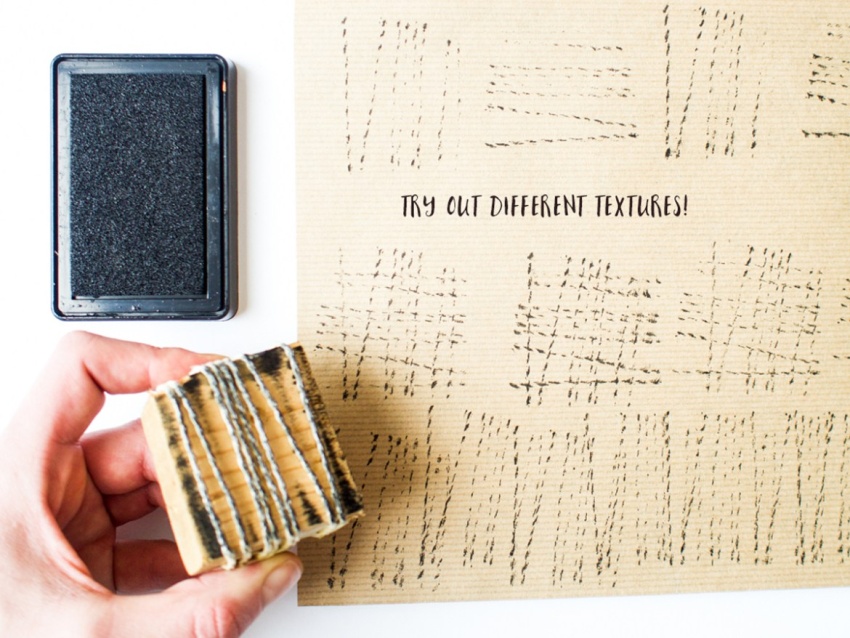 TRY OUT DIFFERENT TEXTURES!